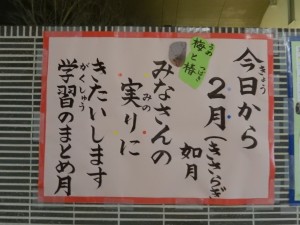 今日から
きょう
2月(きさらぎ
如月
梅と椿
うめ つばき
みなさんの
実りに
みの
きたいします
学習のまとめ月
がくしゅう